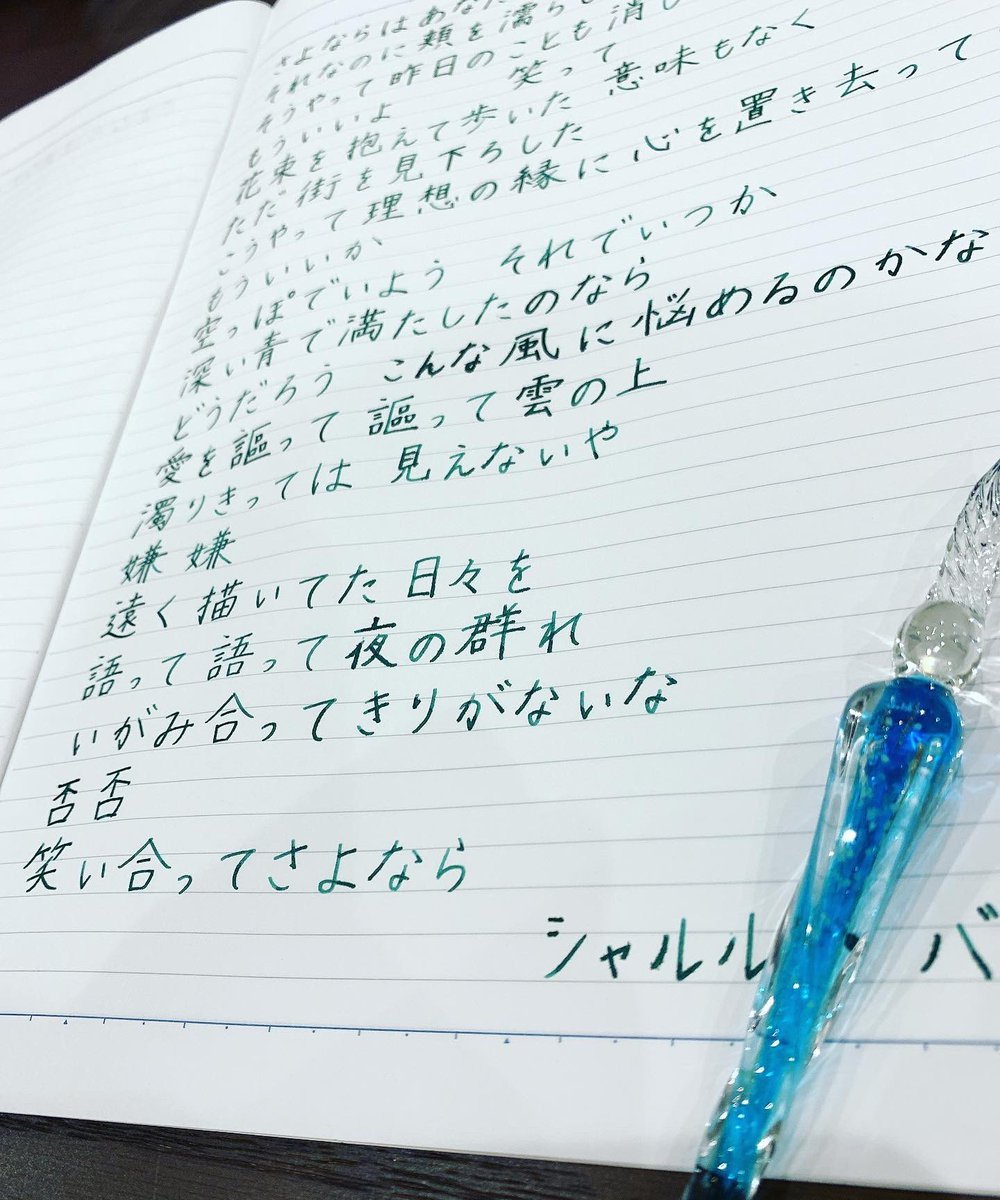 さよならはあなた
それなのに頬を濡らし
そうやって昨日のことも消し
もういいよ 笑って
花束を抱えて歩いた 意味もなく
ただ街を見下ろした
こうやって理想の縁に心を置き去って
もういいか
空っぽでいよう それでいつか
深い青で満たしたのなら
どうだろう こんな風に悩めるのかな
愛を謳って謳って雲の上
濁りきっては 見えないや
嫌 嫌
遠く描いてた日々を
語って語って夜の群れ
いがみ合ってきりがないな
否否
笑い合ってさよなら
シャルル・バ